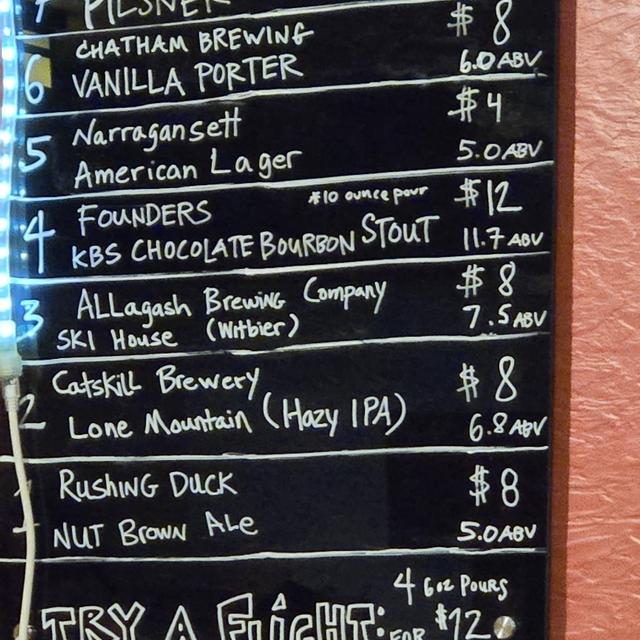 7 PILSNER $ 8
CHATHAM BREWING
6 VANILLA PORTER 6.0 ABV
Narragansett $ 4
5 American Lager 5.0 ABV
FOUNDERS *10 ounce pour $12
4 KBS CHOCOLATE BOURBON STOUT 11.7 ABV
ALLagash Brewing Company $ 8
3 SKI House (Witbier) 7.5 ABV
Catskill Brewery $ 8
2 Lone Mountain (Hazy IPA) 6.8 ABV
RUSHING DUCK $ 8
1 NUT BROWN ALe 5.0 ABV
4 6oz POURS
TRY A FLIGHT: FOR $12